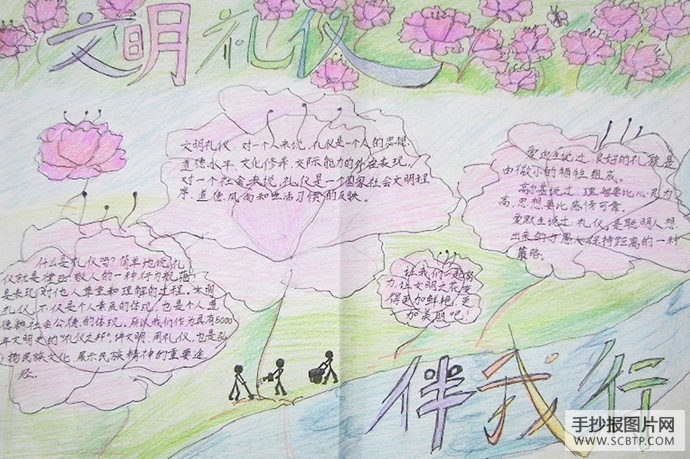 文明礼仪
文明礼仪，对一个人来说，礼仪是一个人的思想
道德水平、文化修养、交际能力的外在表现，
对一个社会来说，礼仪是一个国家社会文明程
序、道德风尚和生活习惯的反映。
爱默生说过，良好的礼貌是
由微小的牺牲组成。
高尔基说过，理想要比心灵力
高，思想要比感情可靠。
爱默生说过，礼仪，是聪明人想
出来的与愚人保持距离的一种
策略。
什么是礼仪吗？简单地说，礼
仪就是律己、敬人的一种行为规范，
是表现对他人尊重和理解的过程。文明
礼仪，不仅是个人素质的体现，也是个人道
德和社会公德的体现。所以我们作为具有5000
年文明史的“礼仪之邦”，讲文明、用礼仪，也是弘
扬民族文化、展示民族精神的重要途
径。
让我们一起努
力，让文明之花变
得更加鲜艳，更
加美丽吧！
伴我行
手抄报图片网
WWW.SCBTP.COM